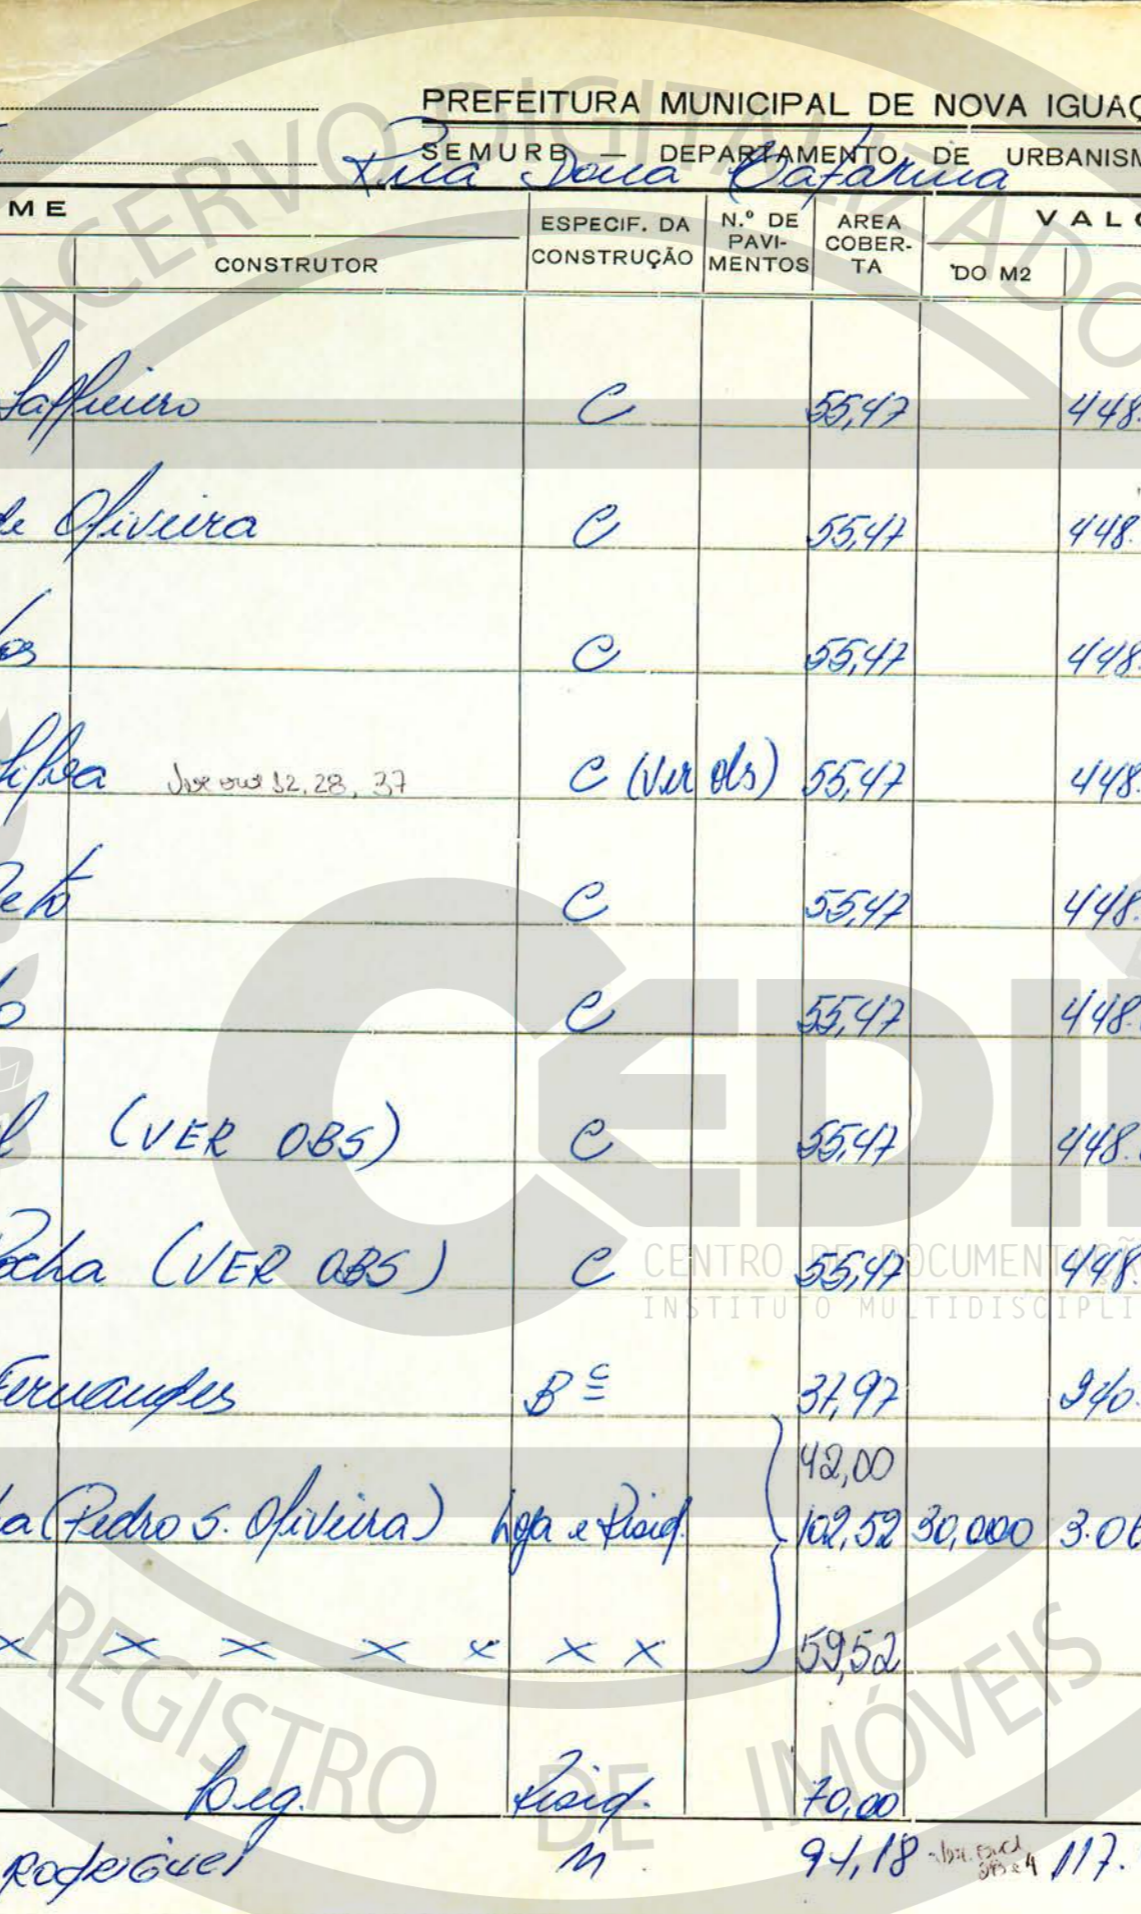 PREFEITURA MUNICIPAL DE NOVA IGUAÇ
SEMURB — DEPARTAMENTO DE URBANISM
Rua Dona Catarina
ME CONSTRUTOR ESPECIF. DA CONSTRUÇÃO N.º DE PAVI-MENTOS AREA COBER-TA VALO DO M2
C 55,47 448.
de Oliveira C 55,47 448.
os C 55,47 448.
Silva 12, 28, 37 C (Ver obs) 55,47 448.
Neto C 55,47 448.
o C 55,47 448.
l (VER OBS) C 55,47 448.
Rocha (VER OBS) C 55,47 448.
Fernandes B c 37,97 940.
42,00
a (Pedro S. Oliveira) Loja e Resid. 102,52 30,000 3.06
x x x x x x x 59,52
Leg. Resid. 70,00
Rodrigues M. 94,18 117.
ACERVO DIGITALIZADO
CEDI
CENTRO DE DOCUMENTAÇÃ
INSTITUTO MULTIDISCIPLI
REGISTRO DE IMÓVEIS